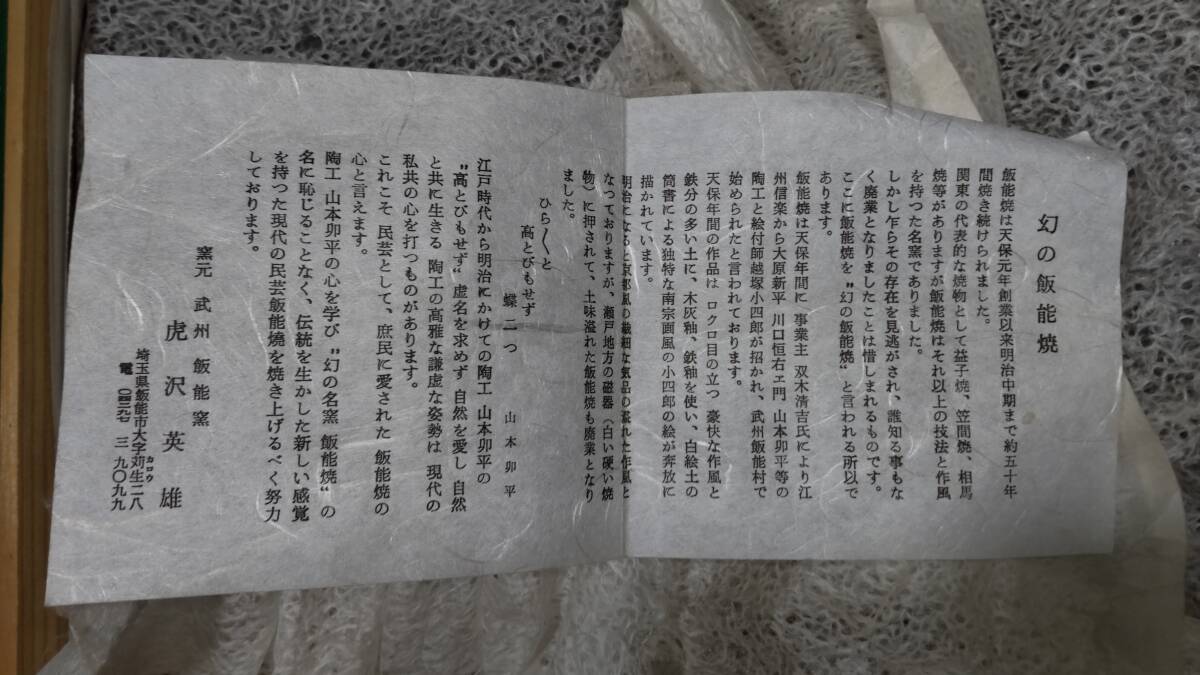 幻の飯能焼
飯能焼は天保元年創業以来明治中期まで約五十年
間焼き続けられました。
関東の代表的な焼物として益子焼、笠間焼、相馬
焼等がありますが飯能焼はそれ以上の技法と作風
を持つた名窯でありました。
しかし乍らその存在を見逃がされ、誰知る事もな
く廃業となりましたことは惜しまれるものです。
ここに飯能焼を〝幻の飯能焼〟と言われる所以で
あります。
飯能焼は天保年間に 事業主 双木清吉氏により江
州信楽から大原新平 川口恒右ヱ門 山本卯平等の
陶工と絵付師越塚小四郎が招かれ、武州飯能村で
始められたと言われております。
天保年間の作品は ロクロ目の立つ 豪快な作風と
鉄分の多い土に、木灰釉、鉄釉を使い、白絵土の
筒書による独特な南宗画風の小四郎の絵が奔放に
描かれています。
明治になると京都風の繊細な気品の溢れた作風と
なつておりますが、瀬戸地方の磁器（白い硬い焼
物）に押されて、土味溢れた飯能焼も廃業となり
ました。
ひら〳〵と
高とびもせず
蝶二つ　山本卯平
江戸時代から明治にかけての陶工 山本卯平の
〝高とびもせず〟虚名を求めず 自然を愛し 自然
と共に生きる 陶工の高雅な謙虚な姿勢は 現代の
私共の心を打つものがあります。
これこそ 民芸として、庶民に愛された 飯能焼の
心と言えます。
陶工 山本卯平の心を学び〝幻の名窯 飯能焼〟の
名に恥じることなく、伝統を生かした新しい感覚
を持つた現代の民芸飯能焼を焼き上げるべく努力
しております。
窯元 武州 飯能窯
虎沢英雄
埼玉県飯能市大字苅生二八
カロウ
電（〇四二九七）三九〇九九